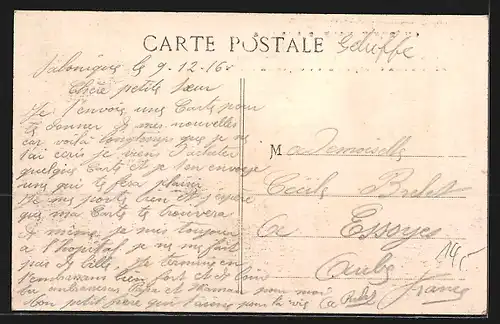 CARTE POSTALE
Geliffe
Salonique le 9-12-16
Chère petite sœur
Je t'envois une Carte pour
te donner de mes nouvelles
car voilà longtemps que je ne
t'ai ecris je viens d'acheter
quelques Carte et je t'en envoye
une qui te fera plaisir
Je me porte bien et j'espère
que ma Carte te trouvera
de même, je suis toujours
a l'hopital je ne me fait
pas de bille. Je termine en
t'embrassant bien fort et de loin
tu embrassera Papa et Maman pour moi
Ton petit frère qui t'aime pour la vie
Mademoiselle
Cécile
a Essoyes
Aube
France